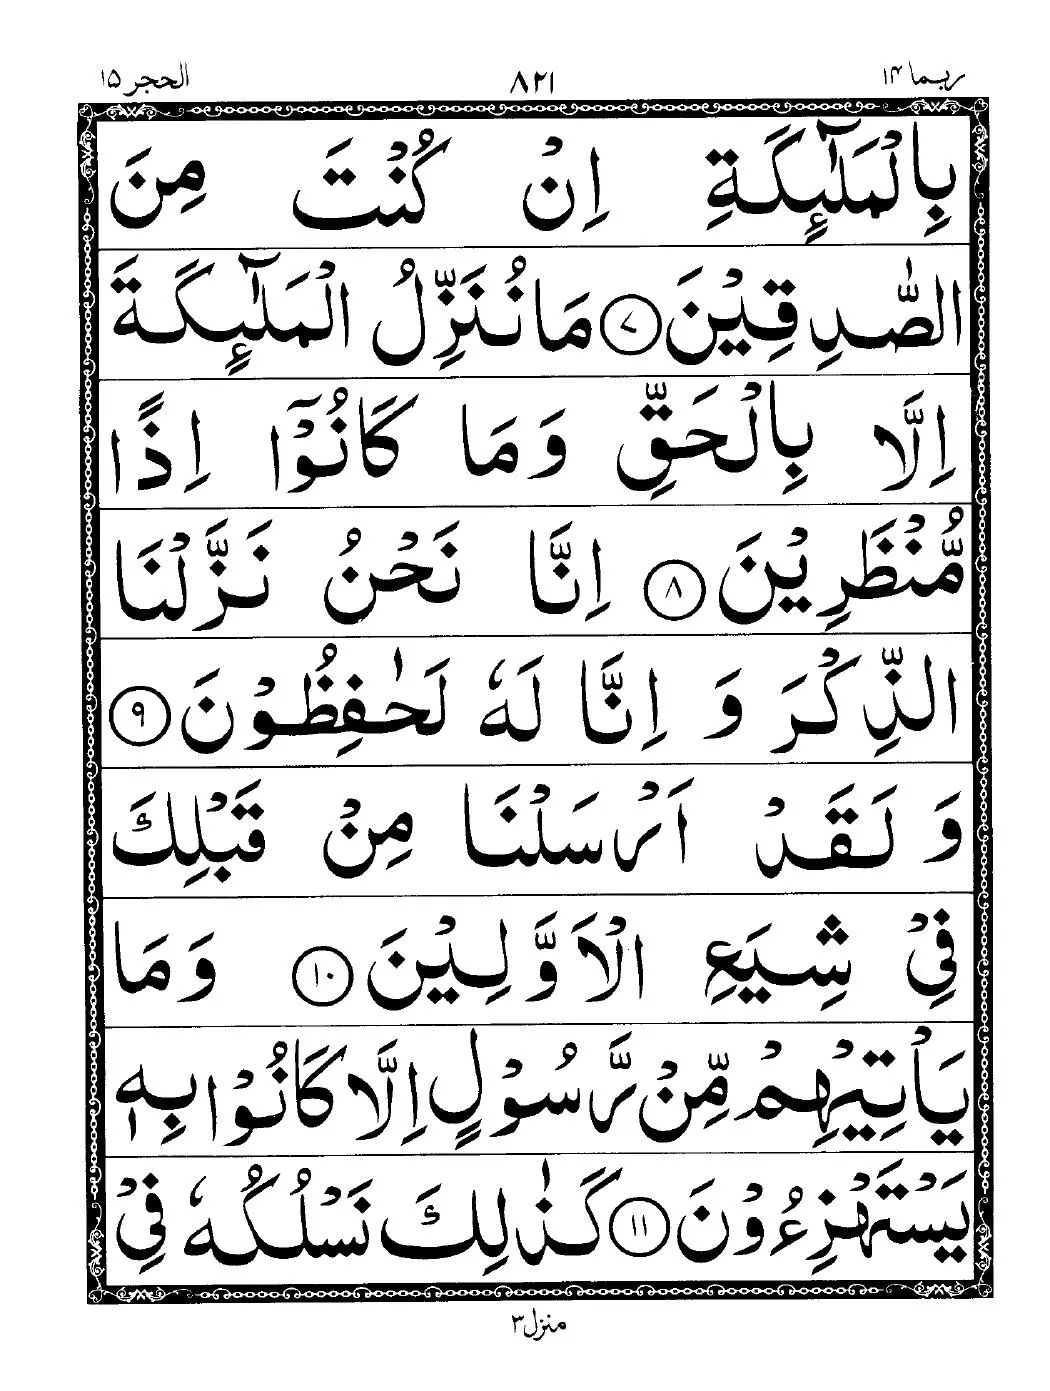 ربما ۱۴ ۸۲۱ الحجر ۱۵
بِالْمَلٰٓئِكَةِ اِنْ كُنْتَ مِنَ
الصّٰدِقِيْنَ ۷ مَا نُنَزِّلُ الْمَلٰٓئِكَةَ
اِلَّا بِالْحَقِّ وَمَا كَانُوْۤا اِذًا
مُّنْظَرِيْنَ ۸ اِنَّا نَحْنُ نَزَّلْنَا
الذِّكْرَ وَ اِنَّا لَهٗ لَحٰفِظُوْنَ ۹
وَ لَقَدْ اَرْسَلْنَا مِنْ قَبْلِكَ
فِيْ شِيَعِ الْاَوَّلِيْنَ ۱۰ وَمَا
يَاْتِيْهِمْ مِّنْ رَّسُوْلٍ اِلَّا كَانُوْا بِهٖ
يَسْتَهْزِءُوْنَ ۱۱ كَذٰلِكَ نَسْلُكُهٗ فِيْ
منزل ۳